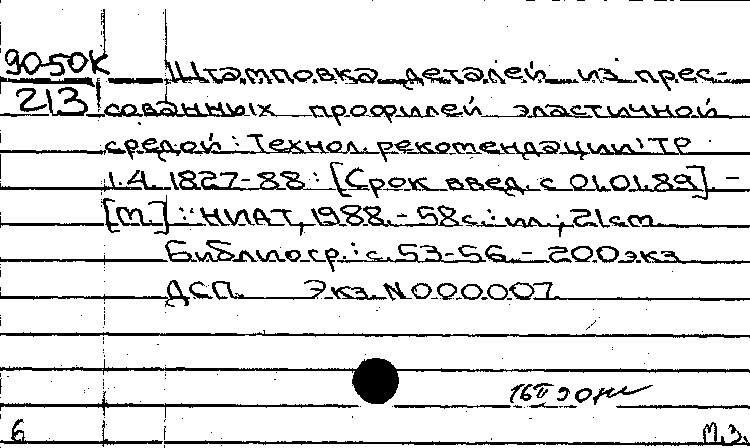 90-50К Штамповка деталей из прес-
213 сованных профилей эластичной
средой : Технол. рекомендации : ТР
1.4. 1827-88 : [Срок введ. с 01.01.89]. -
[М.] : НИАТ, 1988. - 58с. : ил. ; 21см
Библиогр.: с. 53-56. - 200экз
ДСП. Экз. N000007.
16 II 90
6 М.З.